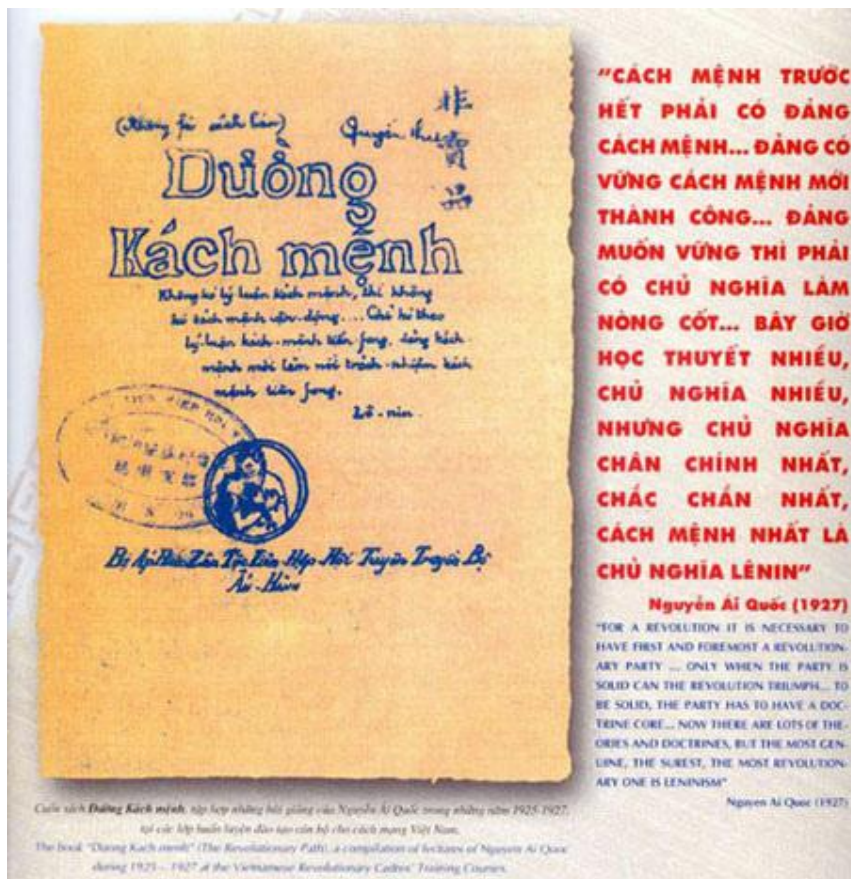 (Không fải sách bán)
Quyển thứ
非賣品
Đường
Kách mệnh
Không kó lý luận kách mệnh, thì không
kó kách mệnh vận-động.... Chỉ kó theo
lý luận kách-mệnh tiền fong, đảng kách
mệnh mới làm nổi trách-nhiệm kách
mệnh tiền fong.
Lê-nin
Bị Áp Bức Zân Tộc Liên Hiệp Hội Tuyên Truyền Bộ
Ấn-Hành
"CÁCH MỆNH TRƯỚC
HẾT PHẢI CÓ ĐẢNG
CÁCH MỆNH... ĐẢNG CÓ
VỮNG CÁCH MỆNH MỚI
THÀNH CÔNG... ĐẢNG
MUỐN VỮNG THÌ PHẢI
CÓ CHỦ NGHĨA LÀM
NÒNG CỐT... BÂY GIỜ
HỌC THUYẾT NHIỀU,
CHỦ NGHĨA NHIỀU,
NHƯNG CHỦ NGHĨA
CHÂN CHÍNH NHẤT,
CHẮC CHẮN NHẤT,
CÁCH MỆNH NHẤT LÀ
CHỦ NGHĨA LÊNIN"
Nguyễn Ái Quốc (1927)
"FOR A REVOLUTION IT IS NECESSARY TO
HAVE FIRST AND FOREMOST A REVOLUTION-
ARY PARTY ... ONLY WHEN THE PARTY IS
SOLID CAN THE REVOLUTION TRIUMPH... TO
BE SOLID, THE PARTY HAS TO HAVE A DOC-
TRINE CORE... NOW THERE ARE LOTS OF THE-
ORIES AND DOCTRINES, BUT THE MOST GEN-
UINE, THE SUREST, THE MOST REVOLUTION-
ARY ONE IS LENINISM"
Nguyen Ai Quoc (1927)
Cuốn sách Đường Kách mệnh, tập hợp những bài giảng của Nguyễn Ái Quốc trong những năm 1925-1927,
tại các lớp huấn luyện đào tạo cán bộ cho cách mạng Việt Nam.
The book "Duong Kach menh" (The Revolutionary Path), a compilation of lectures of Nguyen Ai Quoc
during 1925 - 1927 at the Vietnamese Revolutionary Cadres' Training Courses.